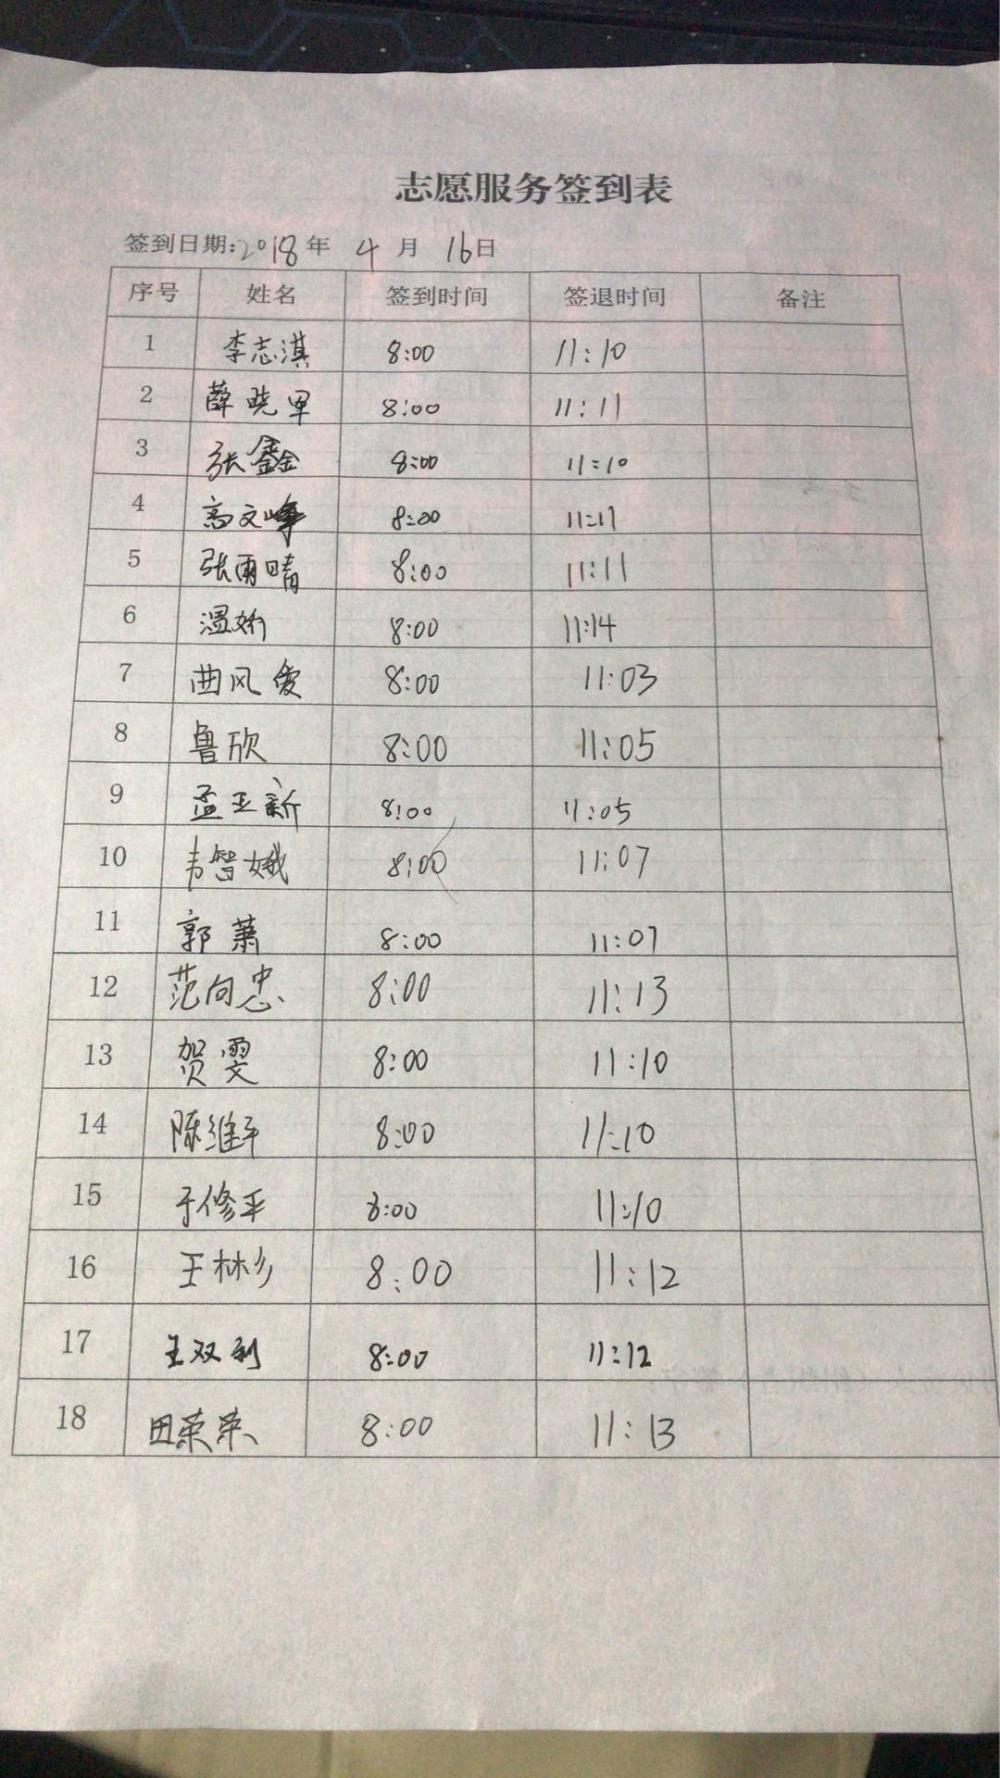 志愿服务签到表
签到日期:2018年 4月 16日
序号 姓名 签到时间 签退时间 备注
1 李志淇 8:00 11:10
2 薛晓军 8:00 11:11
3 张鑫 8:00 11:10
4 高文峰 8:00 11:11
5 张雨晴 8:00 11:11
6 温娇 8:00 11:14
7 曲风爱 8:00 11:03
8 鲁欣 8:00 11:05
9 孟亚新 8:00 11:05
10 韦智娥 8:00 11:07
11 郭萧 8:00 11:07
12 范向忠 8:00 11:13
13 贺雯 8:00 11:10
14 陈维平 8:00 11:10
15 于修平 8:00 11:10
16 王林杉 8:00 11:12
17 王双利 8:00 11:12
18 田荣荣 8:00 11:13